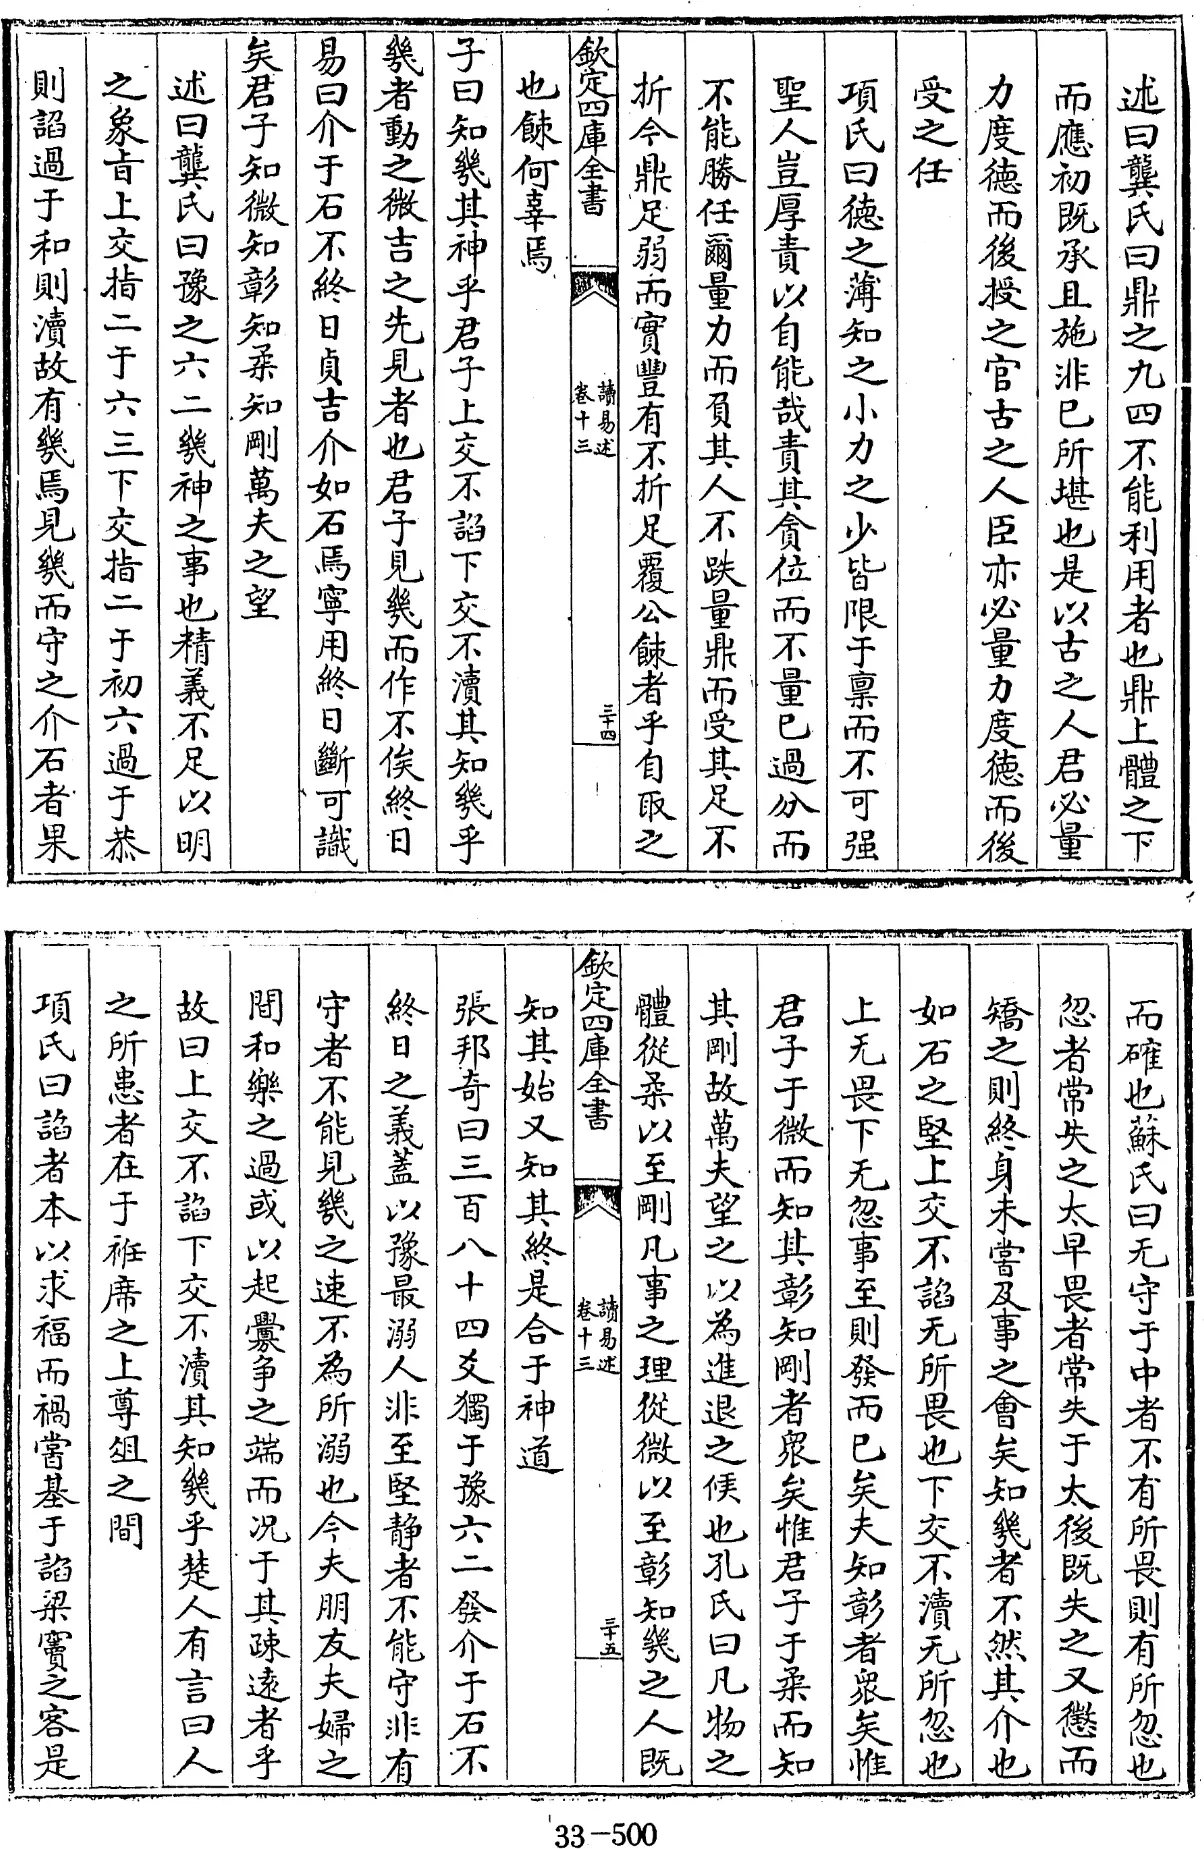 述曰龔氏曰鼎之九四不能利用者也鼎上體之下
而應初既承且施非已所堪也是以古之人君必量
力度德而後授之官古之人臣亦必量力度德而後
受之任
項氏曰德之薄知之小力之少皆限于稟而不可强
聖人豈厚責以自能哉責其貪位而不量已過分而
不能勝任爾量力而負其人不跌量鼎而受其足不
折今鼎足弱而實豐有不折足覆公餗者乎自取之
欽定四庫全書
讀易述
卷十三
三十四
也餗何辜焉
子曰知幾其神乎君子上交不諂下交不瀆其知幾乎
幾者動之微吉之先見者也君子見幾而作不俟終日
易曰介于石不終日貞吉介如石焉寧用終日斷可識
矣君子知微知彰知柔知剛萬夫之望
述曰龔氏曰豫之六二幾神之事也精義不足以明
之象旨上交指二于六三下交指二于初六過于恭
則諂過于和則瀆故有幾焉見幾而守之介石者果
而確也蘇氏曰无守于中者不有所畏則有所忽也
忽者常失之太早畏者常失于太後既失之又懲而
矯之則終身未嘗及事之會矣知幾者不然其介也
如石之堅上交不諂无所畏也下交不瀆无所忽也
上无畏下无忽事至則發而已矣夫知彰者衆矣惟
君子于微而知其彰知剛者衆矣惟君子于柔而知
其剛故萬夫望之以為進退之候也孔氏曰凡物之
體從柔以至剛凡事之理從微以至彰知幾之人既
欽定四庫全書
讀易述
卷十三
三十五
知其始又知其終是合于神道
張邦奇曰三百八十四爻獨于豫六二發介于石不
終日之義蓋以豫最溺人非至堅静者不能守非有
守者不能見幾之速不為所溺也今夫朋友夫婦之
間和樂之過或以起釁争之端而况于其疎遠者乎
故曰上交不諂下交不瀆其知幾乎楚人有言曰人
之所患者在于袵席之上尊俎之間
項氏曰諂者本以求福而禍嘗基于諂梁竇之客是
33-500